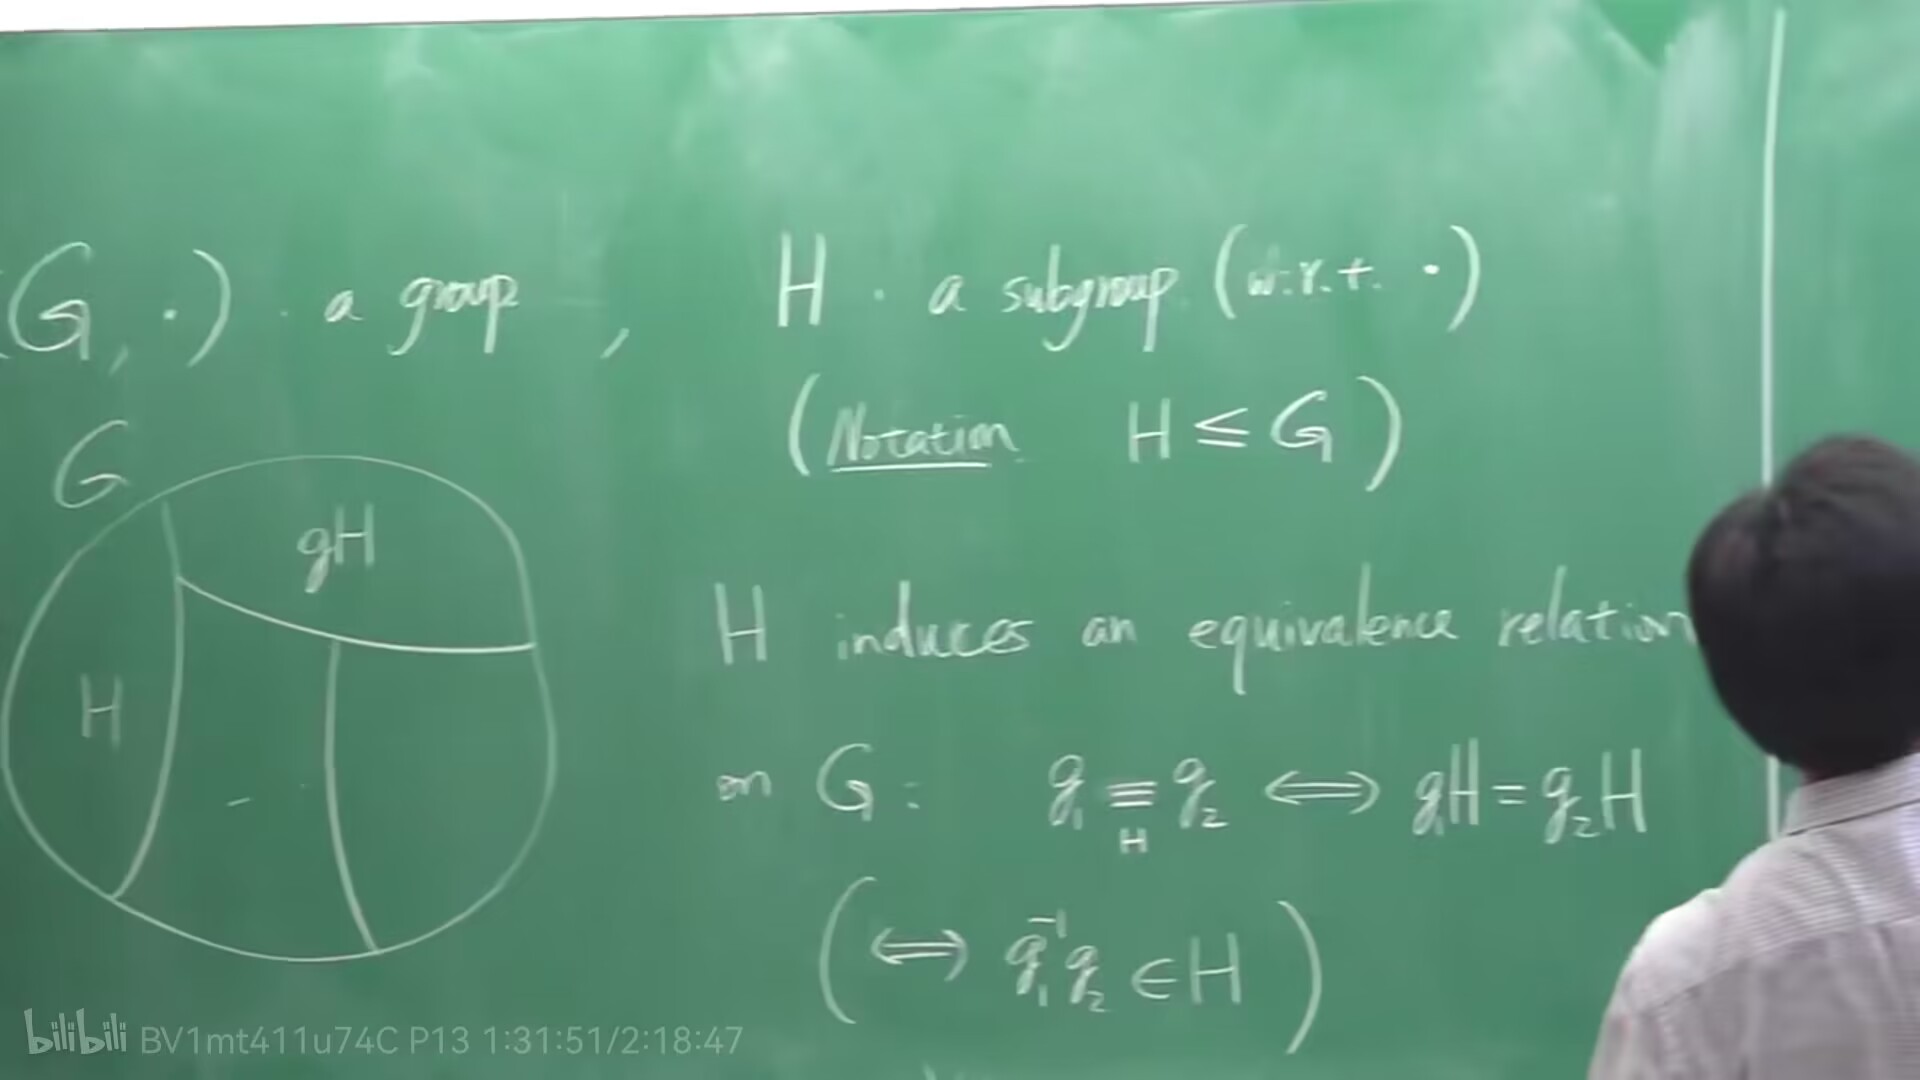 (G, ·) · a group , H · a subgroup (w.r.t. ·)
(Notation H ≤ G)
G
gH
H
H induces an equivalence relation
on G : g₁ ≡_H g₂ ⟺ g₁H = g₂H
(⟺ g₁⁻¹g₂ ∈ H)
bilibili BV1mt411u74C P13 1:31:51/2:18:47